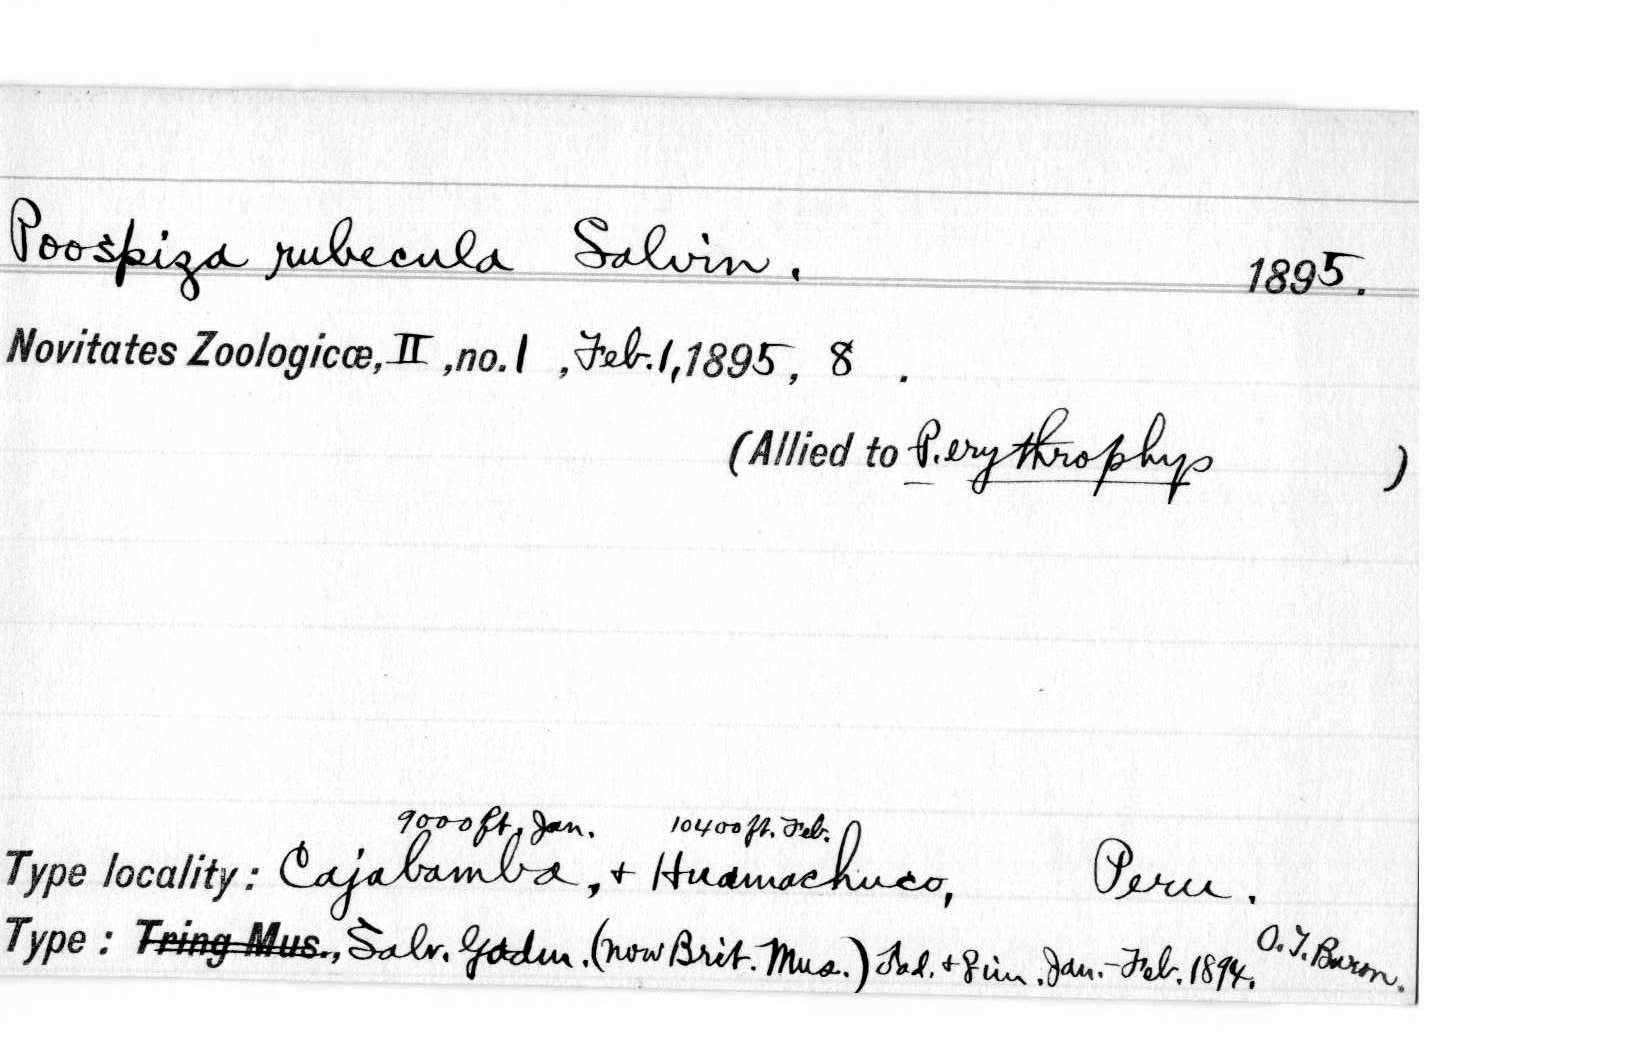 Poospiza rubecula Salvin. 1895.
Novitates Zoologicæ, II, no. 1, Feb. 1, 1895, 8.
(Allied to P. erythrophys)
9000 ft. Jan. 10400 ft. Feb.
Type locality: Cajabamba, + Huamachuco, Peru.
Type: Tring Mus., Salv. Godm. (now Brit. Mus.) ♂ad. + ♂im. Jan.-Feb. 1894. O. T. Baron.